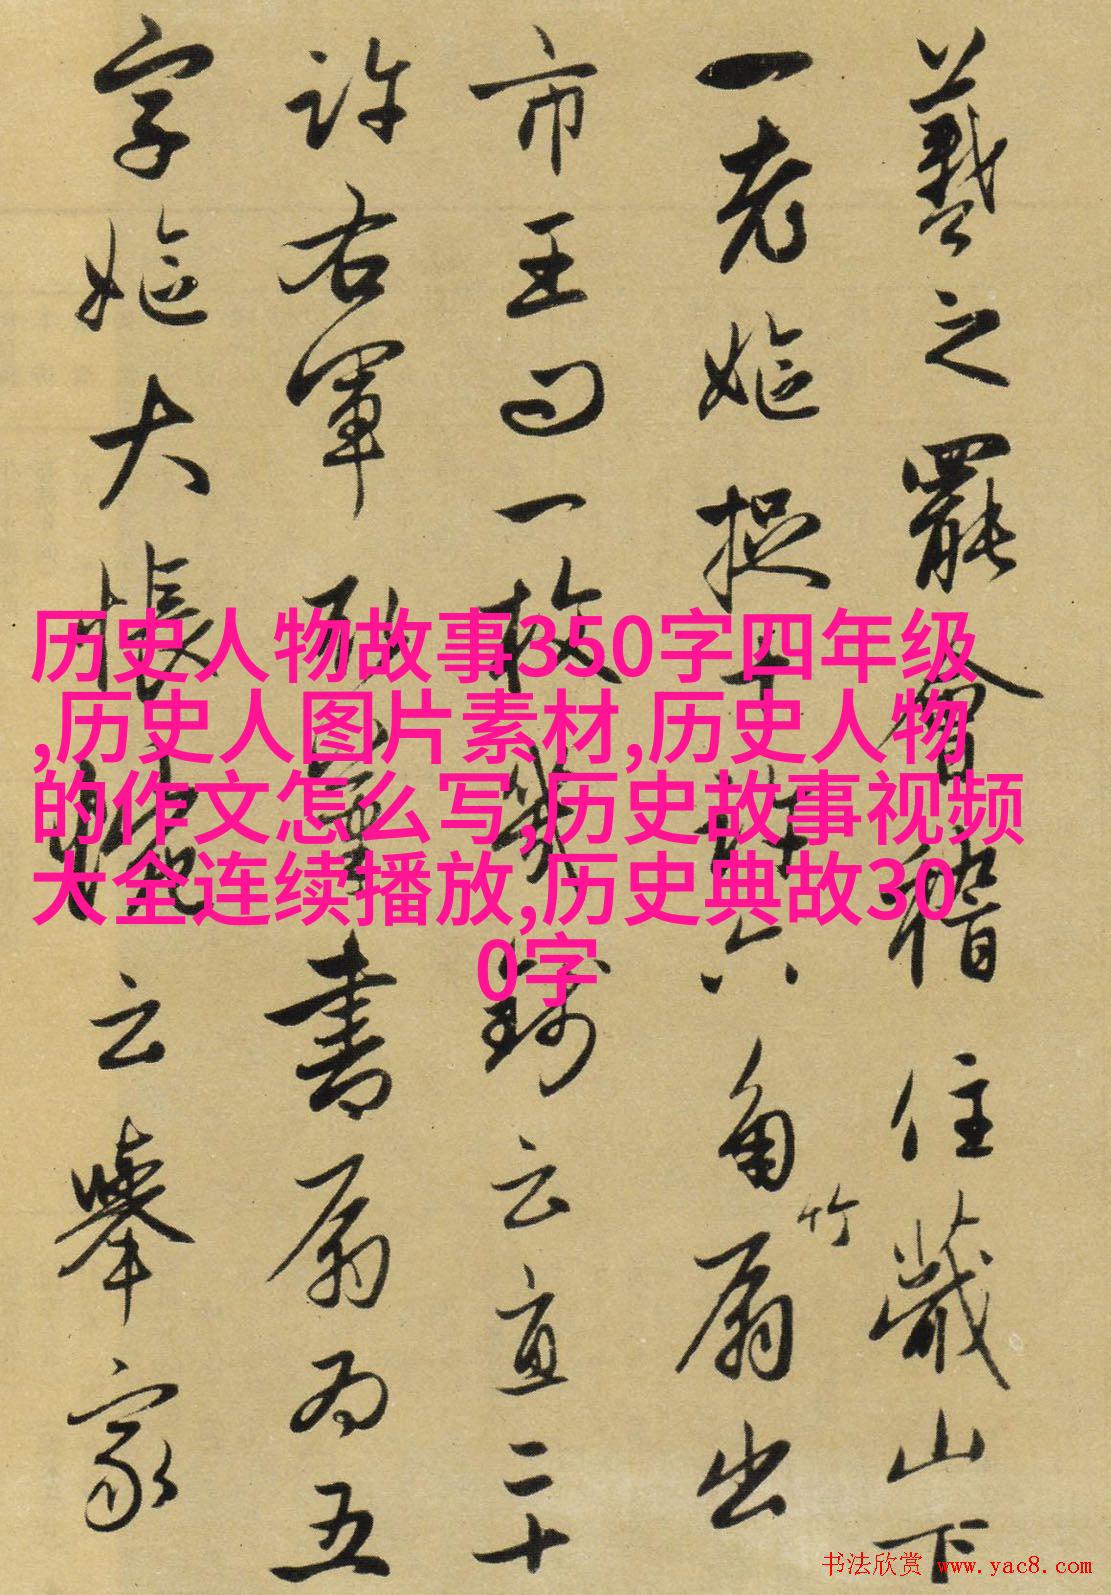 羲之罷會稽住蕺山下
一老嫗捉十許六角竹扇出
市王問一枚幾錢云直二十
許右軍取筆書扇為五
字嫗大悵惋云舉家
历史人物故事350字四年级
,历史人图片素材,历史人物
的作文怎么写,历史故事视频
大全连续播放,历史典故30
0字
书法欣赏 www.yac8.com